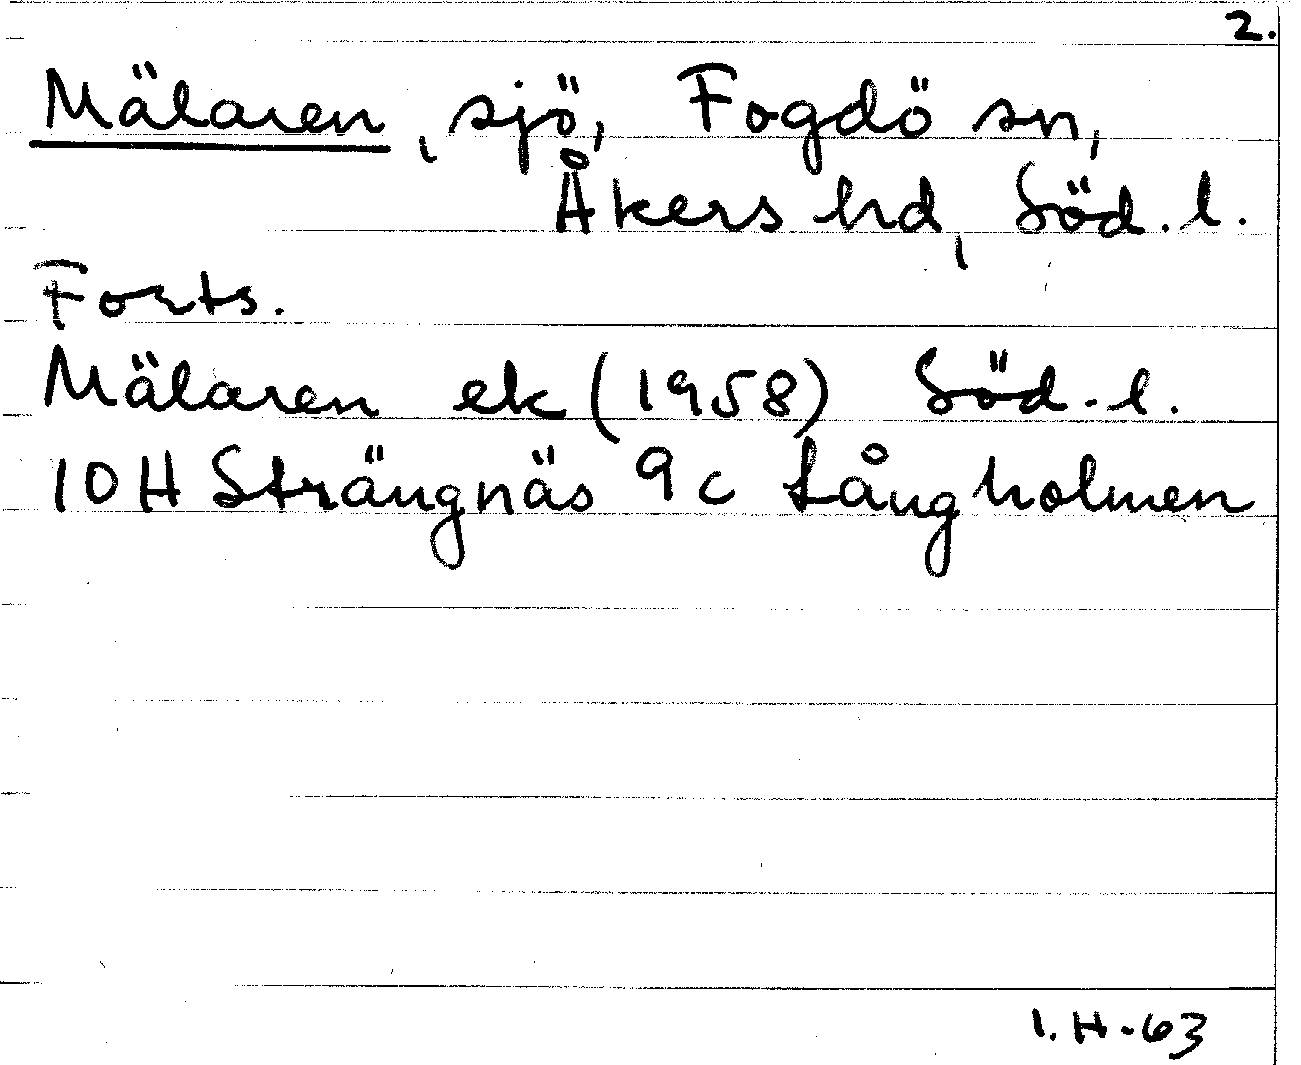 2.
Mälaren, sjö, Fogdö sn,
Åkers hd, Söd. l.
Forts.
Mälaren ek (1958) Söd. l.
10H Strängnäs 9c Långholmen
I. H-63